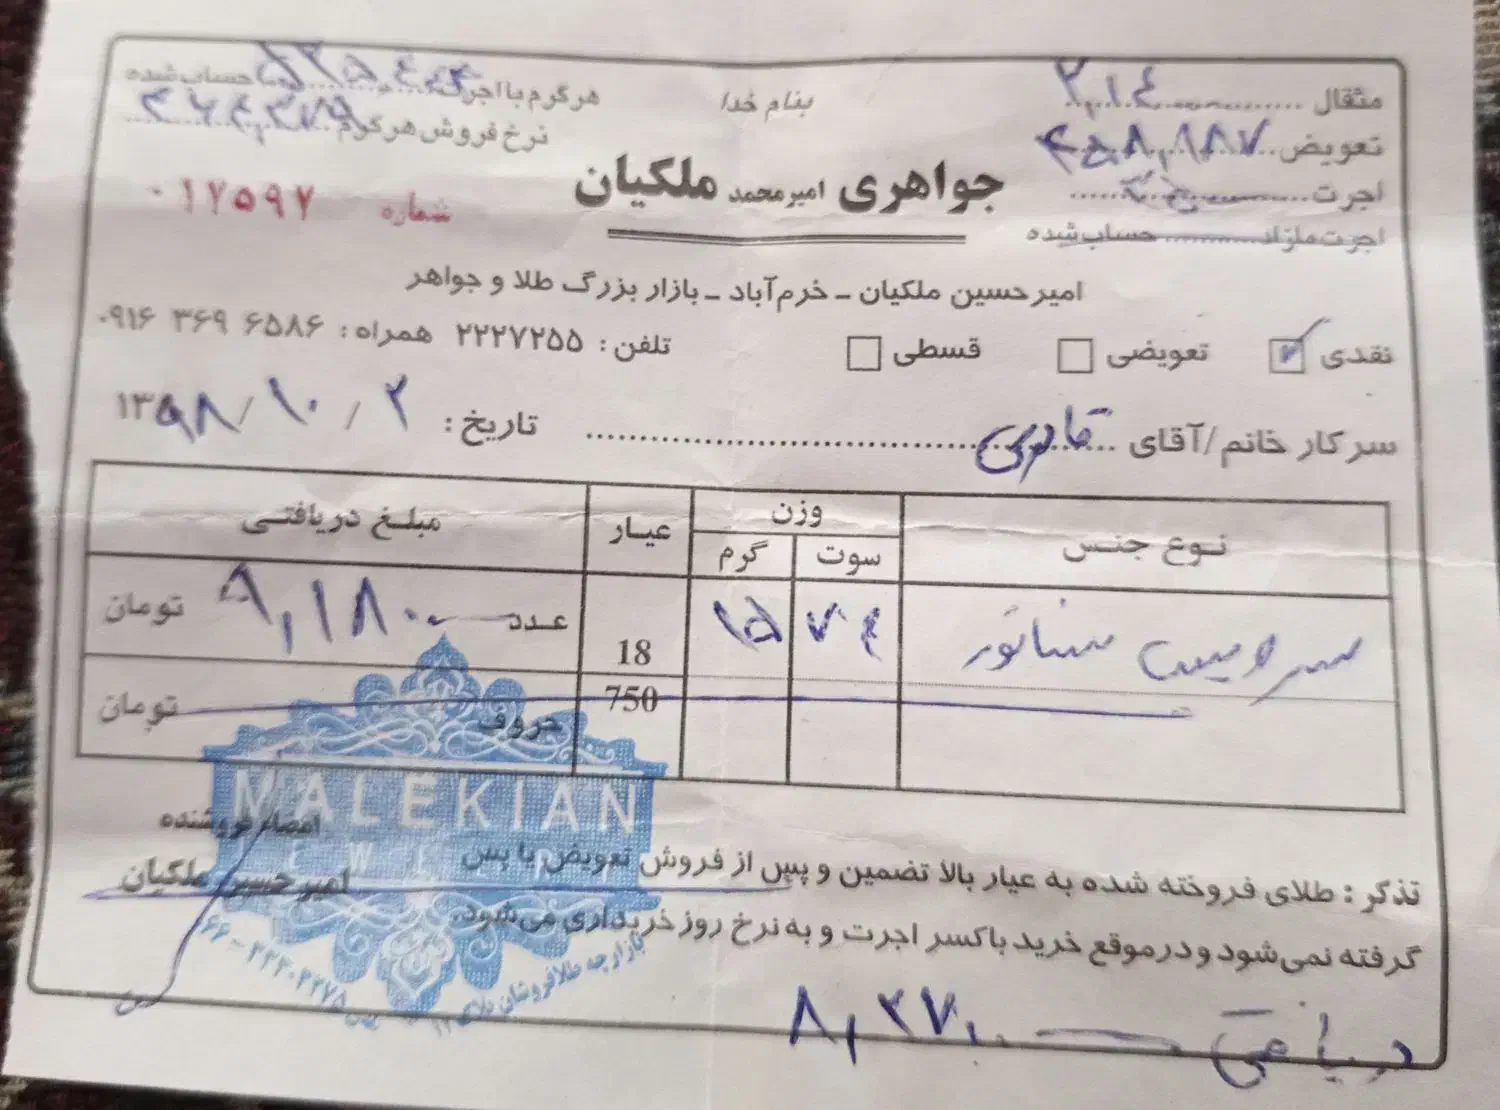 بنام خدا
مثقال
هر گرم با اجرت حساب شده
تعویض ۴۵۸,۱۸۷
نرخ فروش هر گرم
اجرت
اجرت مازاد حساب شده
جواهری امیرمحمد ملکیان
شماره ۰۱۷۵۹۷
امیرحسین ملکیان ـ خرم‌آباد ـ بازار بزرگ طلا و جواهر
نقدی تعویضی قسطی تلفن: ۲۲۲۷۲۵۵ همراه: ۰۹۱۶ ۳۶۹ ۶۵۸۶
سرکار خانم/آقای تاریخ: ۱۳۹۸/۱۰/۲
نوع جنس وزن عیار مبلغ دریافتی
سوت گرم
سرویس سناتور ۷۴ ۱۵ 18 عدد ۹,۱۸۰,۰ تومان
750 حروف تومان
MALEKIAN
امضاء فروشنده
امیرحسین ملکیان
تذکر: طلای فروخته شده به عیار بالا تضمین و پس از فروش تعویض یا پس
گرفته نمی‌شود و در موقع خرید با کسر اجرت و به نرخ روز خریداری می‌شود.
۰۶۶-۲۲۲۰۲۲۷۵
بازارچه طلافروشان پلاک